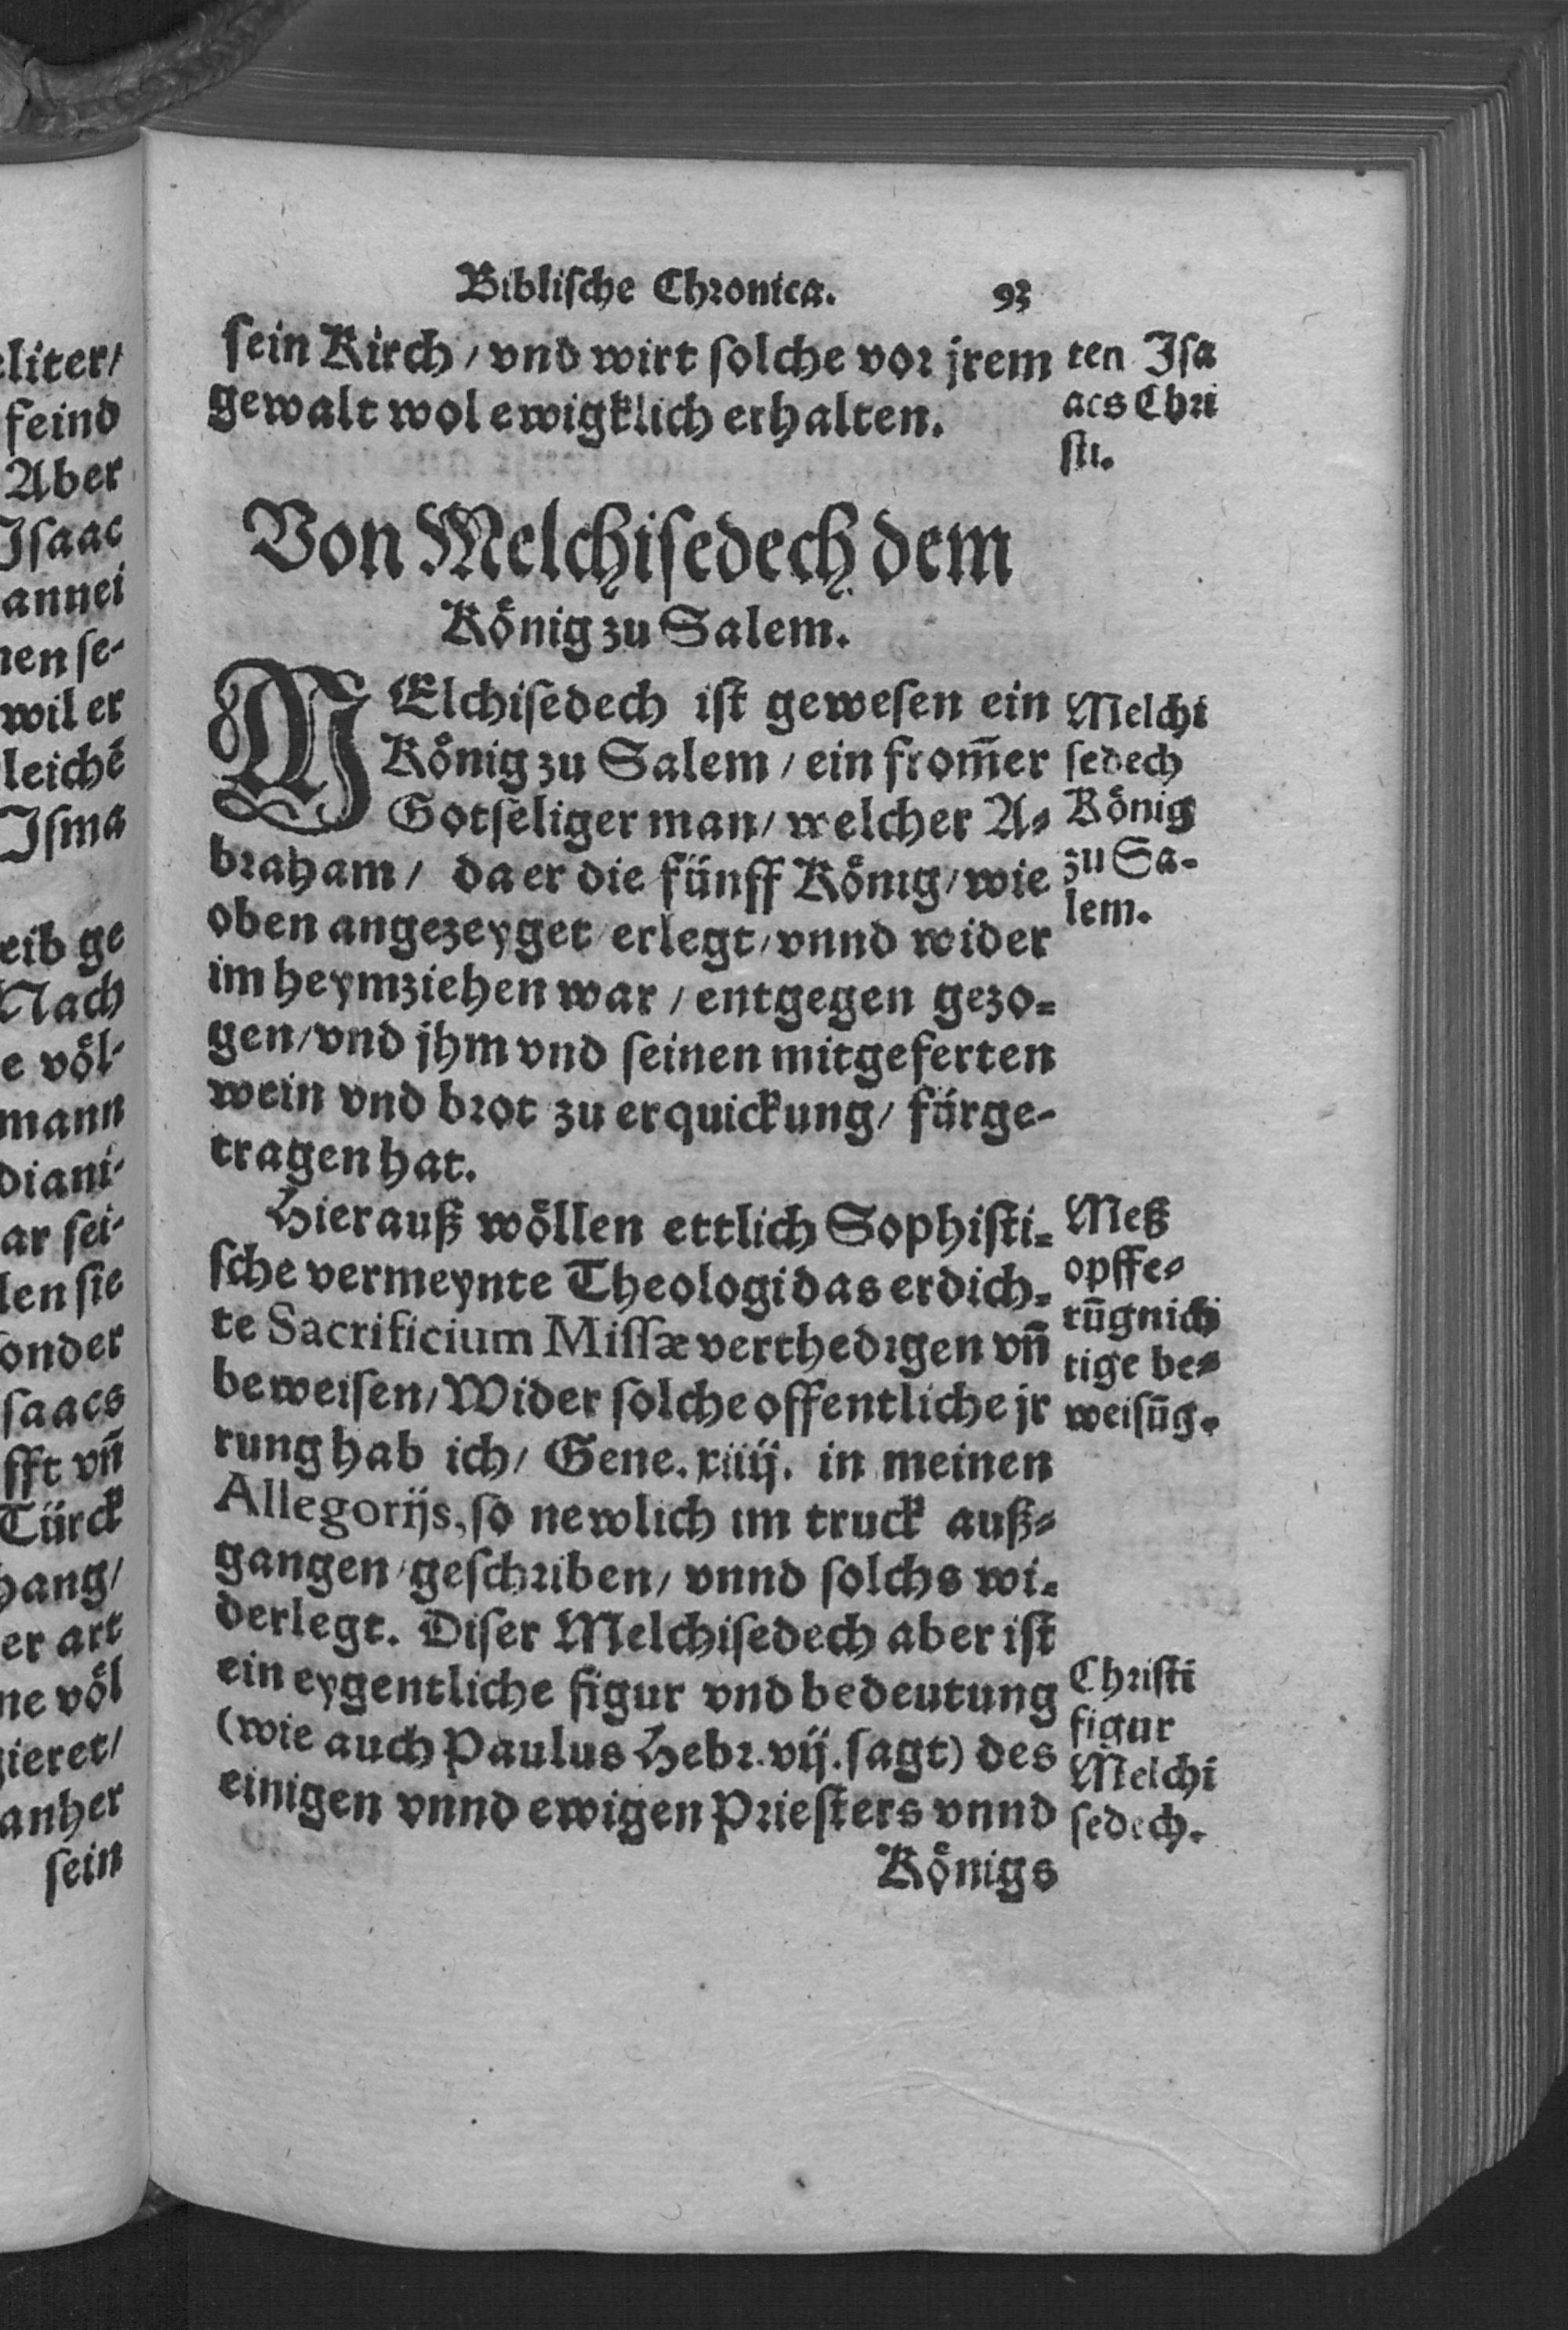 eliter/
feind
Aber
Isaac
annei
nen se-
wil er
leichē
Isma
eib ge
Nach
e völ-
mann
diani-
ar sei-
len sie
sonder
saacs
fft vn̄
Türck
hang/
er art
ne völ
gieret/
anher
sein
Biblische Chronica. 93
sein Kirch / vnd wirt solche vor jrem
gewalt wol ewigklich erhalten.
ten Isa
acs Chri
sti.
Von Melchisedech dem
König zu Salem.
MElchisedech ist gewesen ein
König zu Salem / ein from̄er
Gotseliger man / welcher A-
braham / da er die fünff König / wie
oben angezeyget / erlegt / vnnd wider
im heymziehen war / entgegen gezo-
gen / vnd jhm vnd seinen mitgeferten
wein vnd brot zu erquickung / fürge-
tragen hat.
Melchi
sedech
König
zu Sa-
lem.
Hierauß wöllen ettlich Sophisti-
sche vermeynte Theologi das erdich-
te Sacrificium Missæ verthedigen vn̄
beweisen / Wider solche offentliche jr
rung hab ich / Gene. xiiij. in meinen
Allegorijs, so newlich im truck auß-
gangen / geschriben / vnnd solchs wi-
derlegt. Diser Melchisedech aber ist
ein eygentliche figur vnd bedeutung
(wie auch Paulus Hebr. vij. sagt) des
einigen vnnd ewigen Priesters vnnd
Meß
opffe-
rūgnich
tige be-
weisūg.
Christi
figur
Melchi
sedech.
Königs